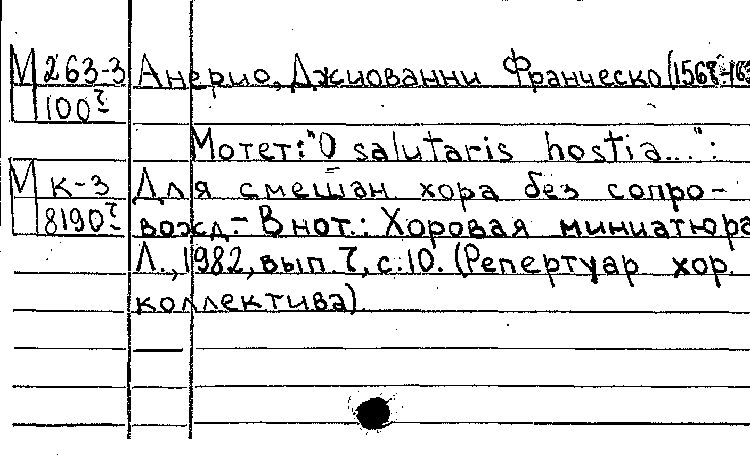 М 263-3 Анерио, Джиованни Франческо (1567-163
100 т
Мотет: "O salutaris hostia...":
М К-3 Для смешан хора без сопро-
8190 т вожд.- В нот.: Хоровая миниатюра
Л., 1982, вып. 7, с. 10. (Репертуар хор.
коллектива)